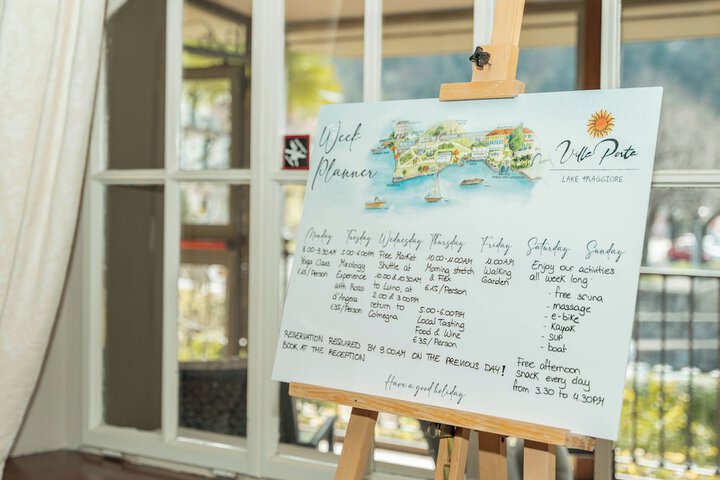 Week
Planner
Villa Porta
LAKE MAGGIORE
Monday
8.00-8.30AM
Yoga Class
€15/Person
Tuesday
5.00-6.00PM
Mixology
Experience
with Rossi
d'Angera
€35/Person
Wednesday
Free Market
Shuttle at
10.00 & 10.30AM
to Luino, at
2.00 & 3.00PM
return to
Colmegna
Thursday
10.00-11.00AM
Morning stretch
& Flex
€15/Person
5.00-6.00PM
Local Tasting
Food & Wine
€35/Person
Friday
11.00AM
Walking
Garden
Saturday Sunday
Enjoy our activities
all week long
- free sauna
- massage
- e-bike
- Kayak
- SUP
- boat
Free afternoon
snack every day
from 3.30 to 4.30PM
RESERVATION REQUIRED BY 9.00AM ON THE PREVIOUS DAY!
BOOK AT THE RECEPTION
Have a good holiday